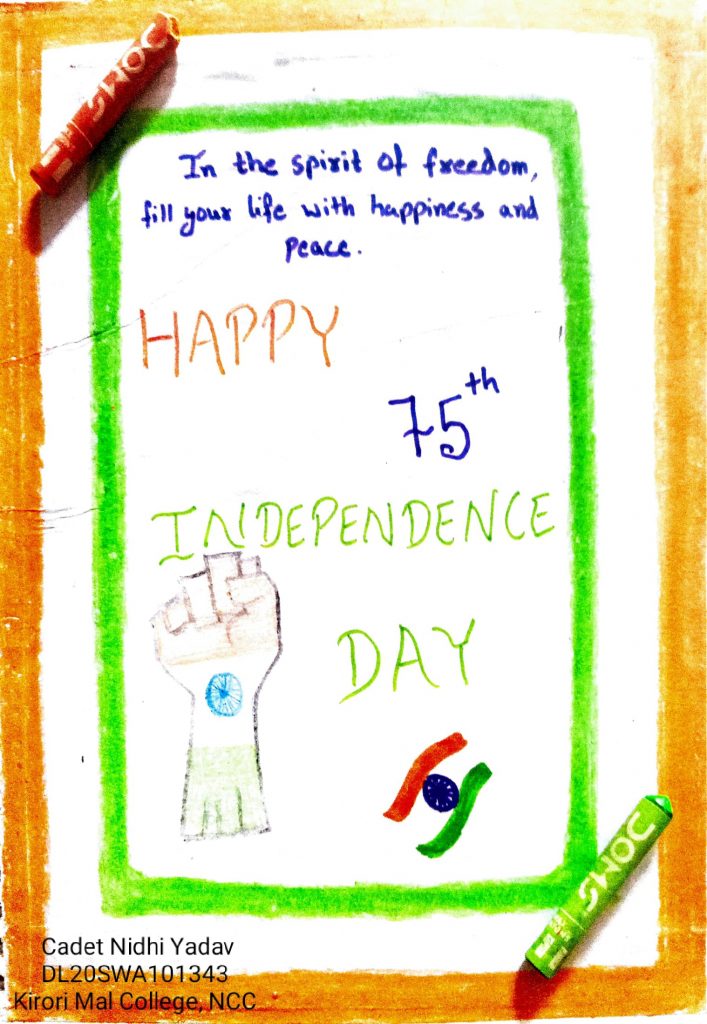 In the spirit of freedom,
fill your life with happiness and
peace.
HAPPY
75th
INDEPENDENCE
DAY
DOMS
DOMS
Cadet Nidhi Yadav
DL20SWA101343
Kirori Mal College, NCC